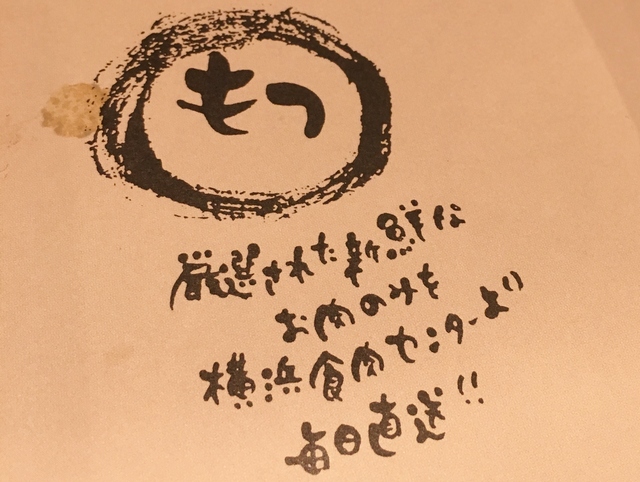 もつ
厳選された新鮮な
お肉のみを
横浜食肉センターより
毎日直送!!